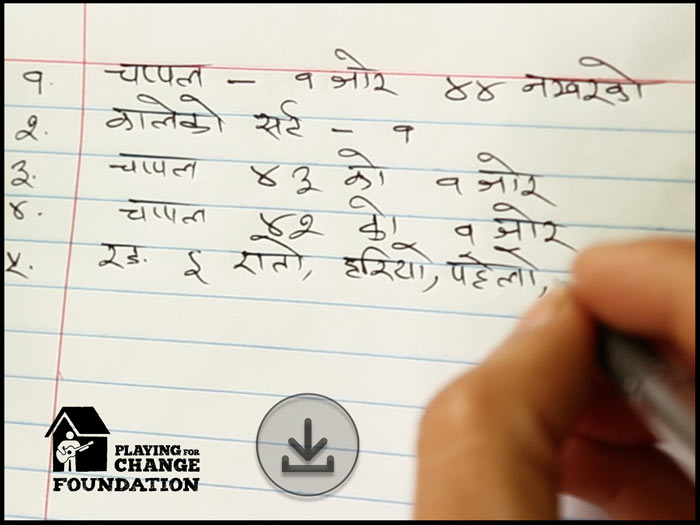 १. चप्पल – १ जोर ४४ नम्बरको
२. कालेको सर्ट – १
३. चप्पल ४३ को १ जोर
४. चप्पल ४२ को १ जोर
५. रङ. ६ रातो, हरियो, पहेलो,
PLAYING FOR
CHANGE
FOUNDATION